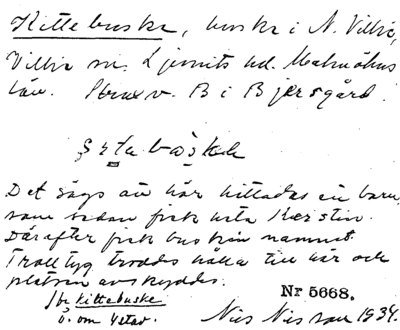 Kittebuske, buske i N. Villie,
Villie sn. Ljunits hd. Malmöhus
län. Strax v. B i Bjersgård.
Det sägs att här hittades en barn,
som sedan fick heta Kerstin.
Därefter fick busken namnet.
Trolltyg troddes hålla till här och
platsen avskyddes.
Jbr Kittebuske
ö. om Ystad.
Nr 5668.
Nils Nilsson 1934.